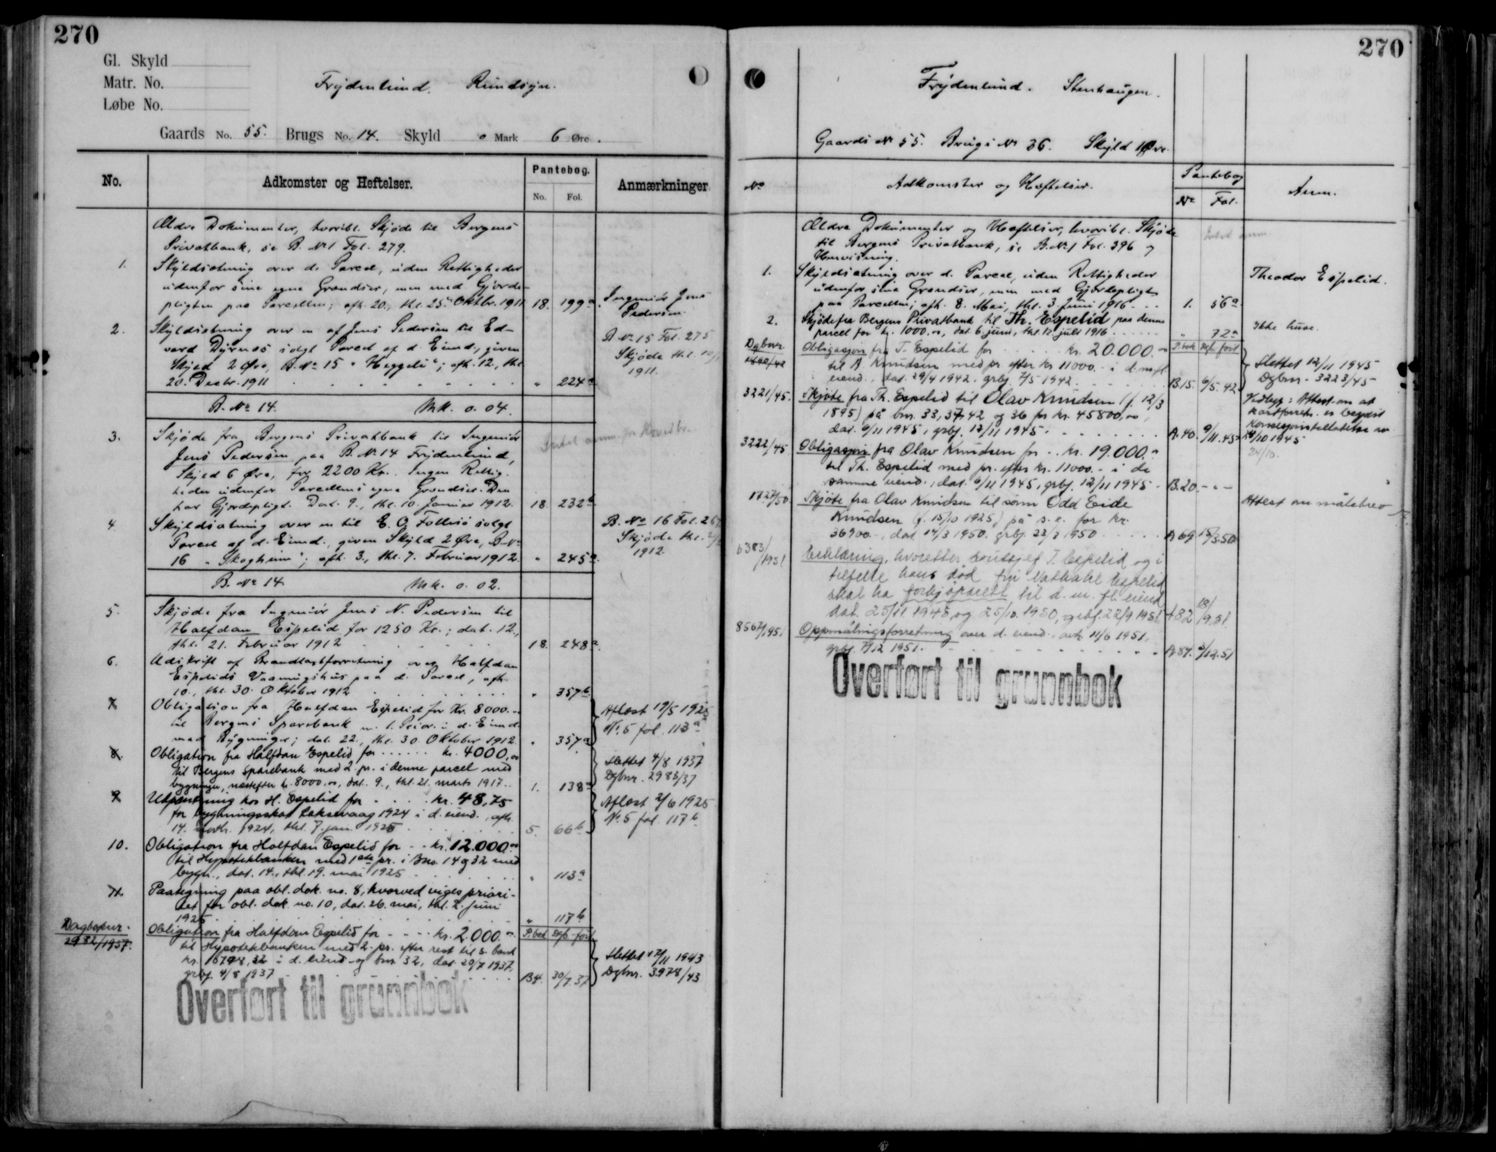 270
Gl. Skyld
Matr. No.
Løbe No.
Frydenlund.
Gaards No. 55. Brugs No. 14. Skyld 0 Mark 6 Øre.
No. Adkomster og Heftelser. Pantebog. No. Fol. Anmærkninger
Ældre Dokumenter, hvoribl. Skjøde til Bergens
Privatbank, se B. No 1 Fol. 279.
1. Skyldsætning over d. Parcel, uden Rettigheder
udenfor sine egne Grændser, men med Gjerde-
pligten paa Parcellen; afh. 20., thl. 25. Oktbr. 1911 18. 199a
Ingeniør Jens
Pedersen.
2. Skyldsætning over en af Jens Pedersen til Ed-
vard Dyrnes solgt Parcel af d. Eiend., given
Skyld 2 Øre, B. No 15 ; afh. 12., thl.
20. Decbr. 1911 " 224a
B. No 15 Fol. 275
Skjøde thl.
1911.
B. No 14. Mk. 0.04.
3. Skjøde fra Bergens Privatbank til Ingeniør
Jens Pedersen paa B. No 14 Frydenlund,
Skyld 6 Øre, for 2200 Kr. Ingen Rettig-
heder udenfor Parcellens egne Grændser. Den
har Gjerdepligt. Dat. 9., thl. 10. Januar 1912. 18 232b
4. Skyldsætning over en til E. O. solgt
Parcel af d. Eiend., given Skyld 2 Øre, B. No
16 "Skogheim"; afh. 3., thl. 7. Februar 1912. " 245a
B. No 16 Fol.
Skjøde thl.
1912.
B. No 14 Mk. 0.02.
5. Skjøde fra Ingeniør Jens N. Pedersen til
Halfdan Espelid for 1250 Kr.; dat. 12.,
thl. 21. Februar 1912 18. 248a
6. Udskrift af Brandtaxtforretning over Halfdan
Espelids Vaaningshus paa d. Parcel, afh.
10., thl. 30. Oktober 1912 " 357b
7. Obligation fra Halfdan Espelid for Kr. 8000.-
til Bergens Sparebank m. 1. Prior. i d. Eiend.
med Bygninger; dat. 22., thl. 30. Oktober 1912. " 357b
Aflæst 19/5 1925
N. 5 fol. 113a
8. Obligation fra Halfdan Espelid for ..... kr. 4000,00
til Bergens Sparebank med 2. pr. i denne parcel med
bygninger, næstefter kr. 8000.00, dat. 9., thl. 21. marts 1917. 1. 138a
Slettet 4/8 1937
Dgbnr. 2983/37
9. Utpantning hos H. Espelid for .... kr. 48,75
for bygningsskat Laksevaag 1924 i d. eiend., afh.
14. 1924, thl. 7. jan. 1925 5. 66b
Aflæst 2/6 1925
N. 5 fol 117b
10. Obligation fra Halfdan Espelid for -- kr. 12.000.00
til Hypotekbanken med 1ste pr. i Bno. 14 og 32 med
bygn., dat. 14., thl. 19. mai 1925 " 113a
11. Paategning paa obl. dok. no. 8, hvorved viges priori-
tet for obl. dok. no. 10, dat. 26. mai, thl. 2. juni
1925 " 117b
Dagboknr.
2982/1937.
Obligation fra Halfdan Espelid for --- kr. 2.000.00 P.bok Dgb. ført
til Hypotekbanken med 2. pr. efter rest til s. bank
i d. eiend. og bnr. 32, dat. 29/7 1937.
grbg. 4/8 1937 B4. 30/7.37
Slettet 17/11 1943
Dgbnr. 3978/43
Overført til grunnbok
270
Frydenlund. Stenhaugen.
Gaards No 55. Brugs No 36. Skyld 1 Øre.
No Adkomster og Heftelser. Pantebog No Fol. Anm.
Ældre Dokumenter og Heftelser, hvoribl. Skjøde
til Bergens Privatbank, se B. No 1 Fol. 396 og
Henvisning.
1. Skyldsætning over d. Parcel, uden Rettigheder
udenfor sine Grændser, men med Gjerdepligten
paa Parcellen; afh. 8. Mai, thl. 3. Juni 1916 1. 56a
Theodor Espelid.
2. Skjøde fra Bergens Privatbank til Th. Espelid paa denne
parcel for kr. 1000.00, dat. 6. juni, thl. 11. juli 1916 " 72a
Ikke huse.
Dgbnr
Obligasjon fra T. Espelid for --- kr. 20.000.- P.bok Dgb. ført
til A. Knudsen med pr. efter kr. 11000.- i d. m. fl.
eiend., dat. 29/4 1942. grbg. 7/5 1942 B.15. 6/5.42
Slettet 12/11 1945
Dgbnr. 3223/45
3221/45.
Skjøte fra Th. Espelid til Olav Knudsen (f. 12/3
1895) på bnr. 33, 37, 42 og 36 for kr. 45800,00,
dat. 9/11 1945, grbg. 12/11 1945 A.40. 9/11.45
10/10 1945
3222/45
Obligasjon fra Olav Knudsen for .. kr. 19.000.-
til Th. Espelid med pr. efter kr. 11000.- i de
samme eiend., dat. 9/11 1945, grbg. 12/11 1945 - B.20. - " -
1727/50.
Skjøte fra Olav Knudsen til sønn Odd Eide
Knudsen (f. 15/10 1925) på s. e. for kr.
36900.-, dat. 14/3 1950. grbg. 22/3 1950 A 69 15/3.50
Attest om målebrev
6383/1951
Erklæring, hvoretter boutsjef T. Espelid og i
tilfelle hans død fru Espelid
skal ha forkjøpsrett til d. m. fl. eiend.
dat. 25/11 1945, og 25/10 1950, grbg. 22/9 1951. A82 19/9.51
8567/1951.
Oppmålingsforretning over d. eiend. avh. 11/6 1951.
grbg. 7/12 1951 A.84. 4/12.51
Overført til grunnbok